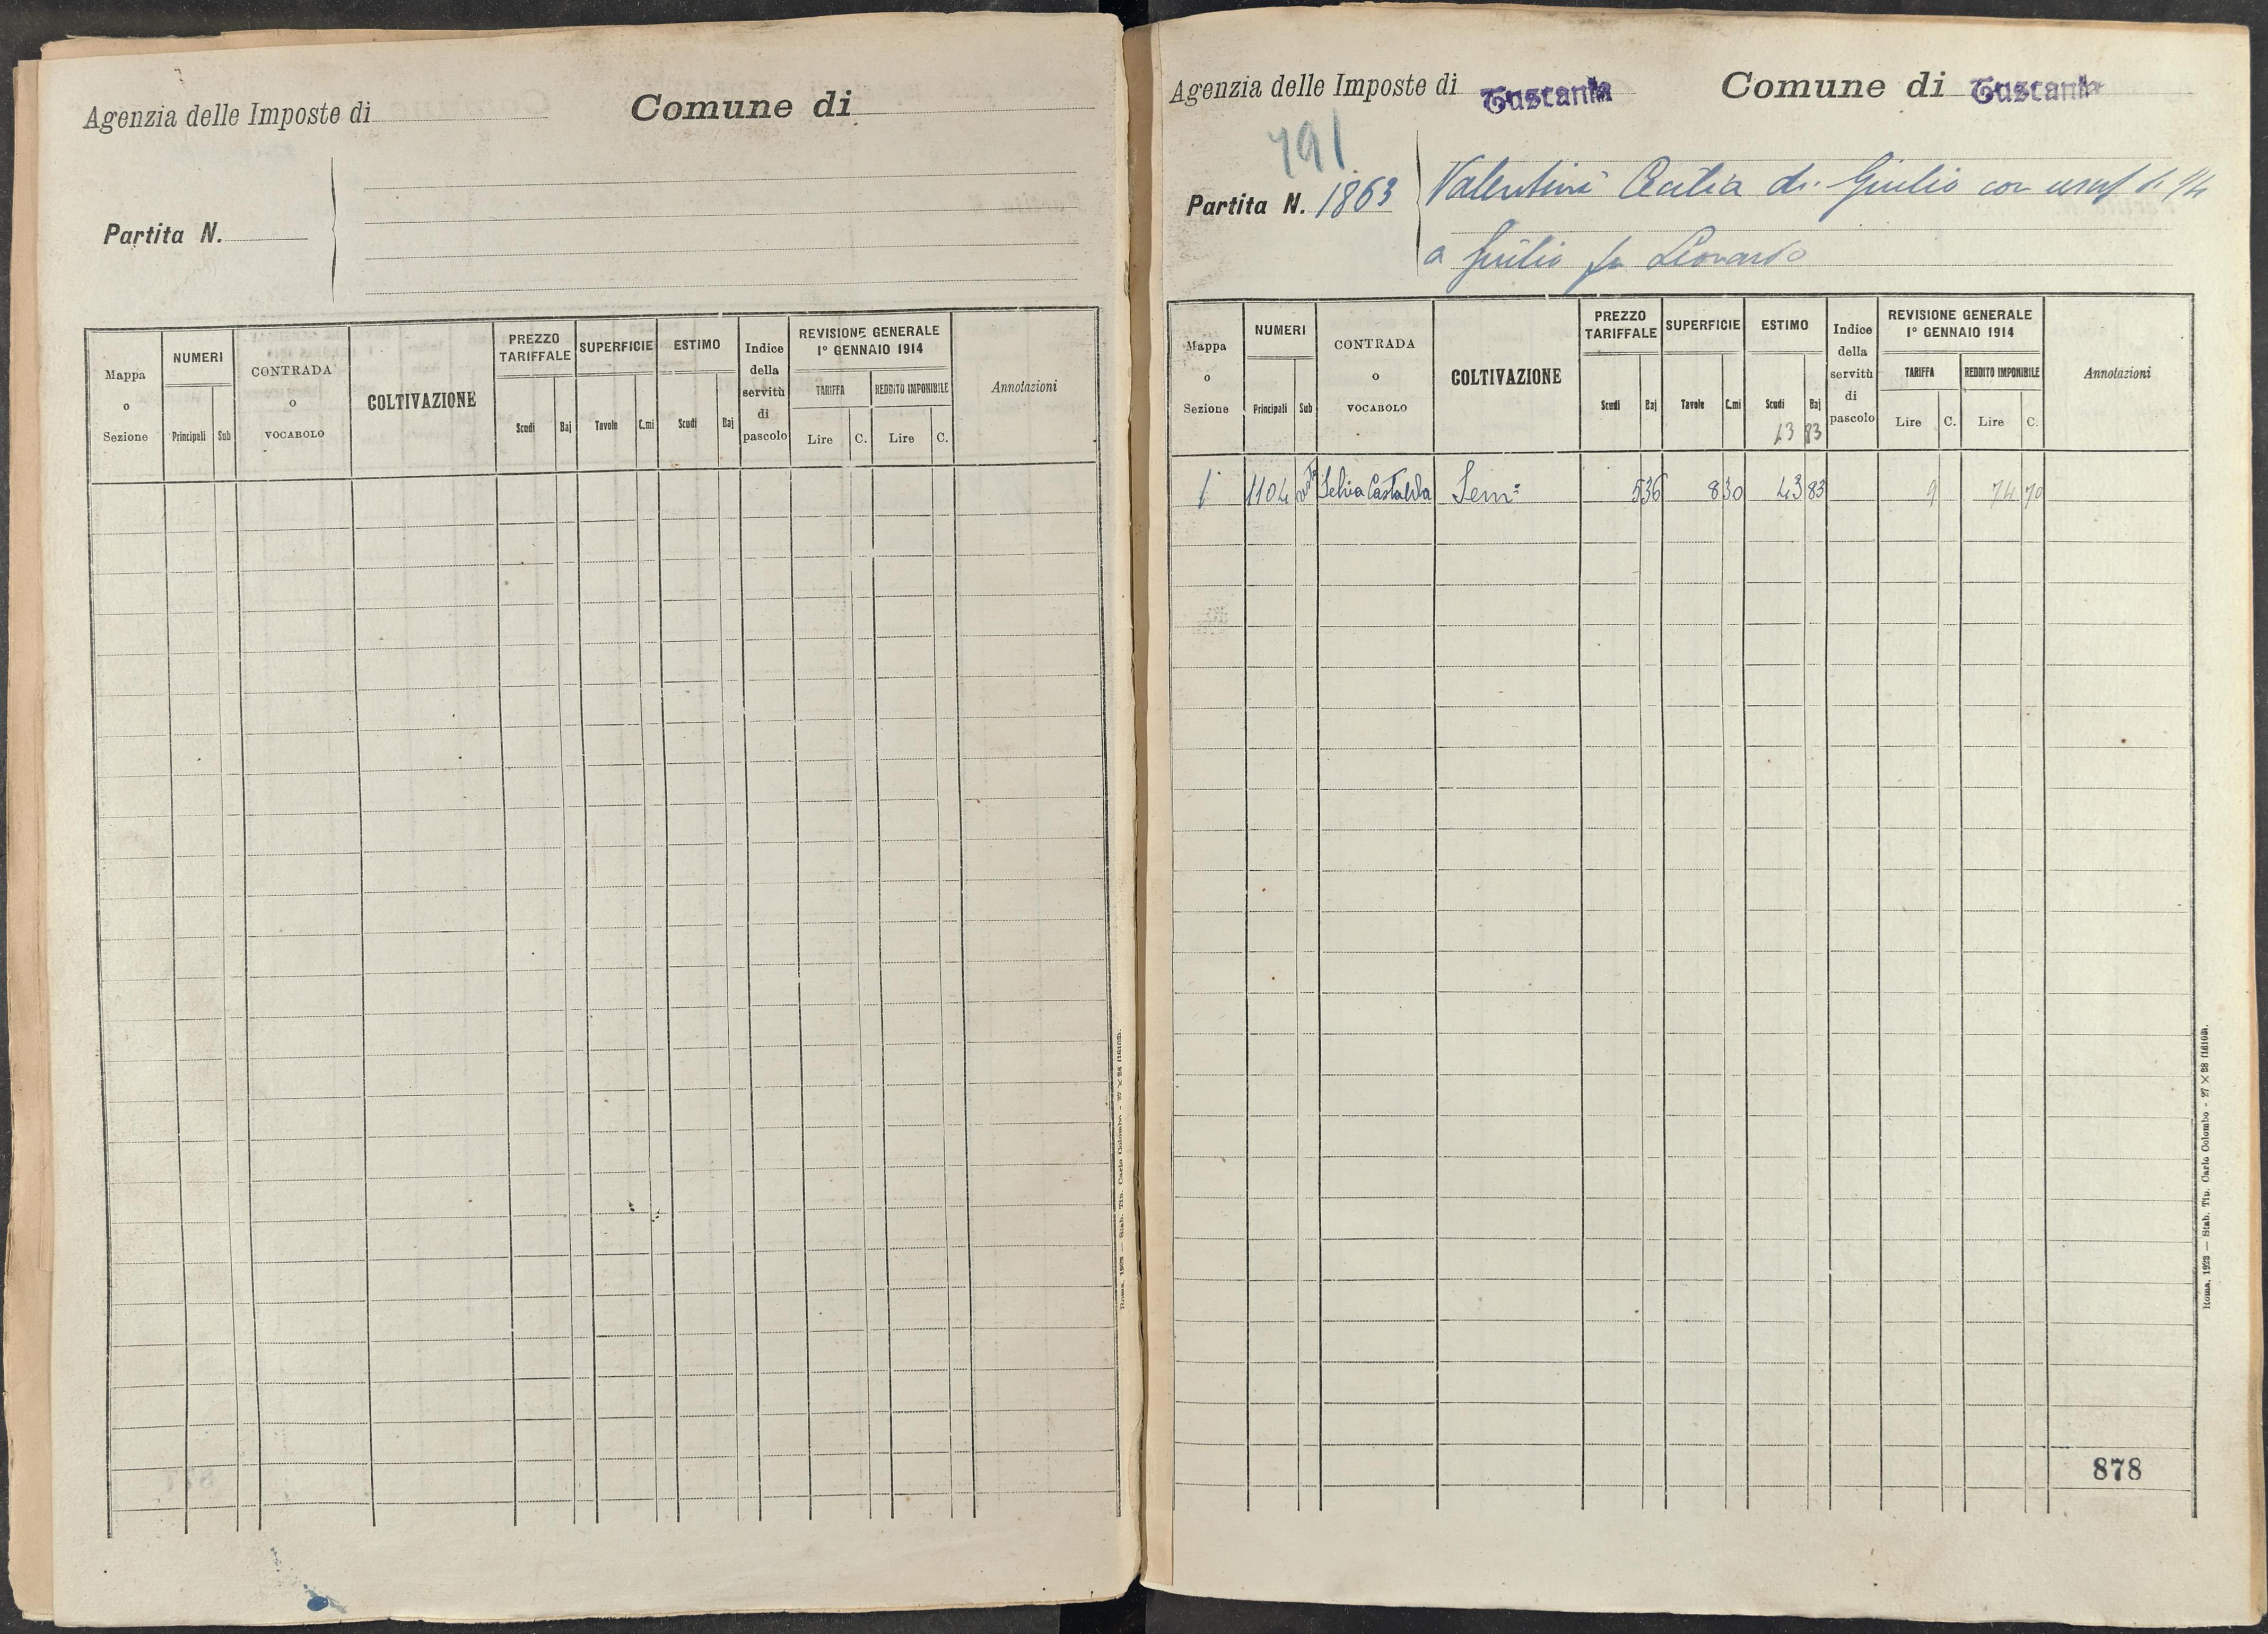 Agenzia delle Imposte di
Comune di
Partita N.
Mappa o Sezione
NUMERI
Principali
Sub
CONTRADA o VOCABOLO
COLTIVAZIONE
PREZZO TARIFFALE
Scudi
Baj
SUPERFICIE
Tavole
C.mi
ESTIMO
Scudi
Baj
Indice della servitù di pascolo
REVISIONE GENERALE 1° GENNAIO 1914
TARIFFA
Lire
C.
REDDITO IMPONIBILE
Lire
C.
Annotazioni
Roma, 1923 — Stab. Tip. Carlo Colombo - 27 × 38 (16103).
Agenzia delle Imposte di Tuscania
Comune di Tuscania
791
Partita N. 1863
Valentini Cecilia di Giulio con usuf di 1/4
a Giulio fu Leonardo
Mappa o Sezione
NUMERI
Principali
Sub
CONTRADA o VOCABOLO
COLTIVAZIONE
PREZZO TARIFFALE
Scudi
Baj
SUPERFICIE
Tavole
C.mi
ESTIMO
Scudi
Baj
43 83
Indice della servitù di pascolo
REVISIONE GENERALE 1° GENNAIO 1914
TARIFFA
Lire
C.
REDDITO IMPONIBILE
Lire
C.
Annotazioni
1 1104 Selvia Castalda Sem: 5 36 8 30 43 83 9 74 70
878
Roma, 1923 — Stab. Tip. Carlo Colombo - 27 × 38 (16103).